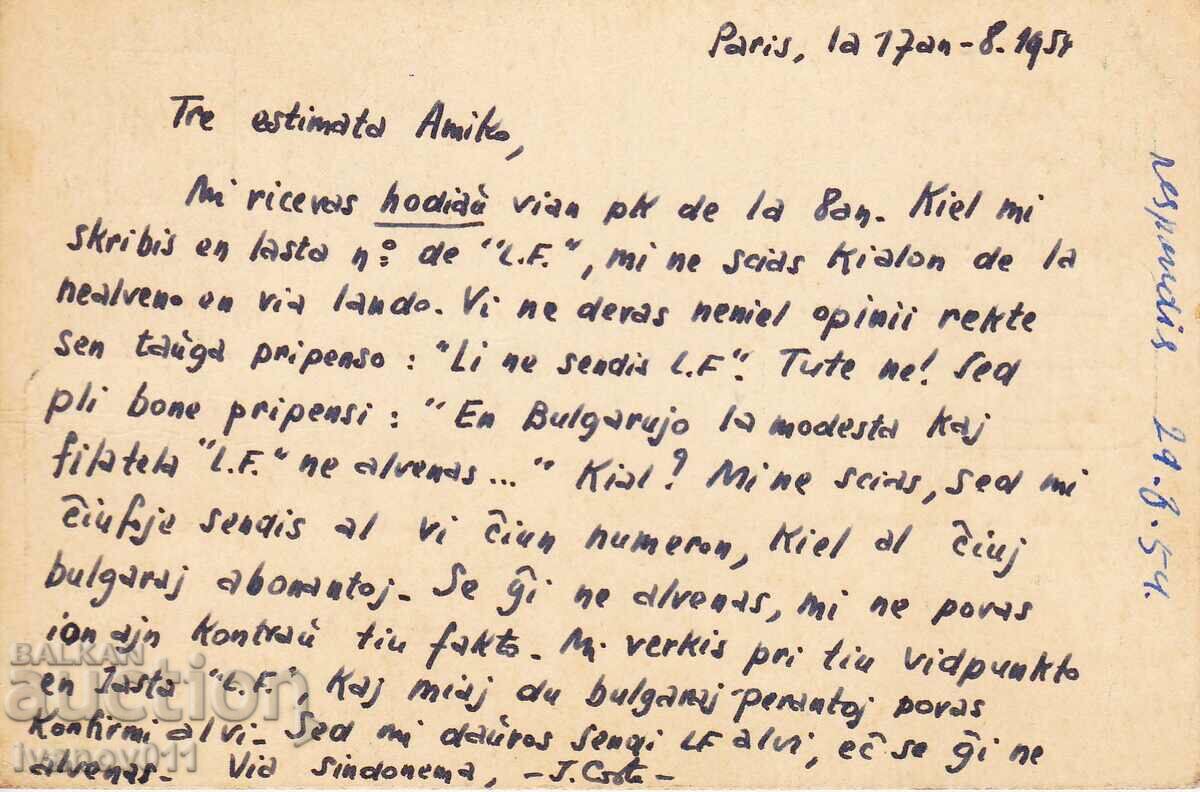 Paris, la 17an - 8. 1954
Tre estimata Amiko,
Mi ricevas hodiaŭ vian pk de la 8an. Kiel mi
skribis en lasta nº de "L.F.", mi ne scias kialon de la
nealveno en via lando. Vi ne devas neniel opinii rekte
sen taŭga pripenso : "Li ne sendis L.F". Tute ne! Sed
pli bone pripensi : "En Bulgarujo la modesta kaj
filatela "L.F." ne alvenas..." Kial? Mi ne scias, sed mi
ĉiufoje sendis al vi ĉiun numeron, kiel al ĉiuj
bulgaraj abonantoj. Se ĝi ne alvenas, mi ne povas
ion ajn kontraŭ tiu fakto. Mi verkis pri tiu vidpunkto
en lasta "L.F.", kaj miaj du bulgaraj perantoj povas
konfirmi al vi. Sed mi daŭros sendi LF al vi, eĉ se ĝi ne
alvenas. Via sindonema, -J.
respondis 29-8-54.
BALKAN
auction
ivanov011